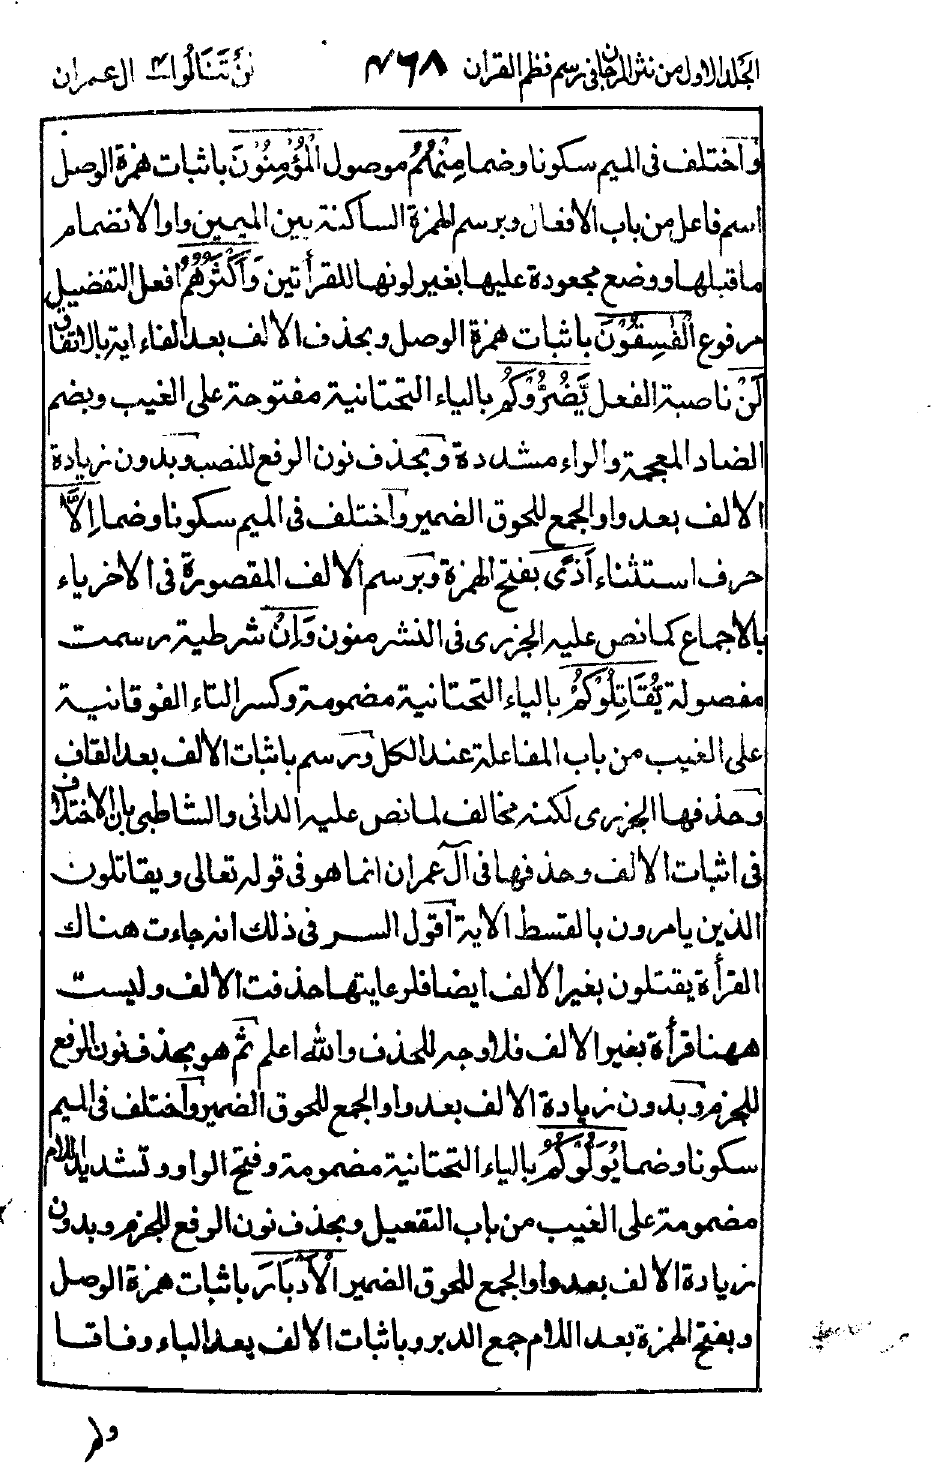 الجلد الاول من نثر المرجان فى رسم نظم القران ۴۶۸ لن تَنَالُوا ۴ ال عمران
وَاختلف فى الميم سكونا وضما مِنْهُمُ موصول الْمُؤْمِنُوْنَ باثبات همزة الوصل
اسم فاعل من باب الافعال وبرسم الهمزة الساكنة بين الميمين واوا لانضمام
ما قبلها ووضع مجعودة عليها بغير لونها للقرأتين وَاَكْثَرُهُمُ افعل التفضيل
مرفوع الْفٰسِقُوْنَ باثبات همزة الوصل وبحذف الالف بعد الفاء اية بالاتفاق
لَنْ ناصبة الفعل يَّضُرُّوْكُمْ بالياء التحتانية مفتوحة على الغيب وبضم
الضاد المعجمة والراء مشددة وبحذف نون الرفع للنصب وبدون زيادة
الالف بعد واو الجمع للحوق الضمير واختلف فى الميم سكونا وضما اِلَّاۤ
حرف استثناء اَذًى بفتح الهمزة وبرسم الالف المقصورة فى الاخر ياء
بالاجماع كما نص عليه الجزرى فى النشر منون وَاِنْ شرطية رسمت
مفصولة يُّقَاتِلُوْكُمْ بالياء التحتانية مضمومة وكسر التاء الفوقانية
على الغيب من باب المفاعلة عند الكل ورسم باثبات الالف بعد القاف
وحذفها الجزرى لكنه مخالف لما نص عليه الدانى والشاطبى بان الاختلاف
فى اثبات الالف وحذفها فى آل عمران انما هو فى قوله تعالى ويقاتلون
الذين يامرون بالقسط الاية اقول السر فى ذلك انه جاءت هناك
القرأة يقتلون بغير الالف ايضا فلرعايتها حذفت الالف وليست
ههنا قرأة بغير الالف فلا وجه للحذف والله اعلم ثم هو بحذف نون الرفع
للجزم وبدون زيادة الالف بعد واو الجمع للحوق الضمير واختلف فى الميم
سكونا وضما يُوَلُّوْكُمُ بالياء التحتانية مضمومة وفتح الواو وتشديد اللام
مضمومة على الغيب من باب التفعيل وبحذف نون الرفع للجزم وبدون
زيادة الالف بعد واو الجمع للحوق الضمير الْاَدْبَارَ باثبات همزة الوصل
وبفتح الهمزة بعد اللام جمع الدبر وباثبات الالف بعد الباء وفاقا